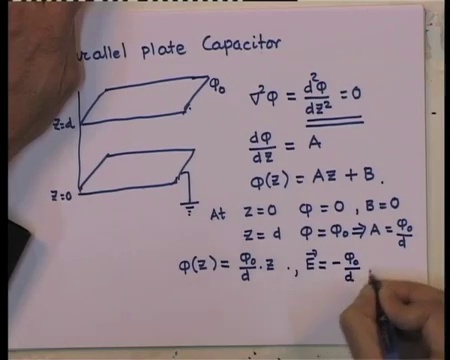 rallel plate Capacitor
φ₀
z=d
z=0
∇²φ = d²φ/dz² = 0
dφ/dz = A
φ(z) = Az + B.
At z=0 φ=0, B=0
z=d φ=φ₀ ⇒ A = φ₀/d
φ(z) = φ₀/d . z ., E⃗ = - φ₀/d